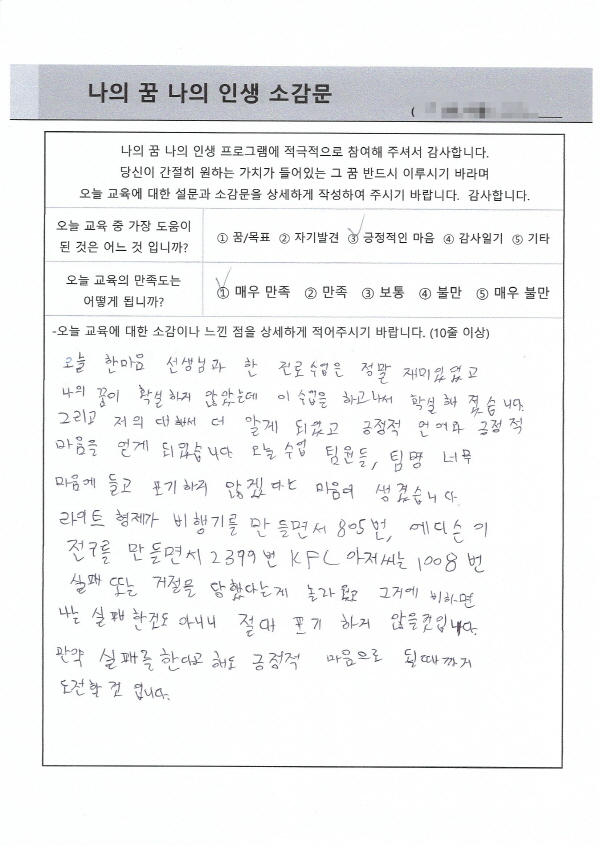 나의 꿈 나의 인생 소감문
(
나의 꿈 나의 인생 프로그램에 적극적으로 참여해 주셔서 감사합니다.
당신이 간절히 원하는 가치가 들어있는 그 꿈 반드시 이루시기 바라며
오늘 교육에 대한 설문과 소감문을 상세하게 작성하여 주시기 바랍니다. 감사합니다.
오늘 교육 중 가장 도움이
된 것은 어느 것 입니까?
① 꿈/목표 ② 자기발견 ③ 긍정적인 마음 ④ 감사일기 ⑤ 기타
오늘 교육의 만족도는
어떻게 됩니까?
① 매우 만족 ② 만족 ③ 보통 ④ 불만 ⑤ 매우 불만
-오늘 교육에 대한 소감이나 느낀 점을 상세하게 적어주시기 바랍니다. (10줄 이상)
오늘 한마음 선생님과 한 진로수업은 정말 재미있었고
나의 꿈이 확실하지 않았는데 이 수업을 하고나서 확실해 졌습니다.
그리고 저의 대해서 더 알게 되었고 긍정적 언어와 긍정적
마음을 얻게 되었습니다 오늘 수업 팀원들, 팀명 너무
마음에 들고 포기하지 않겠다는 마음이 생겼습니다.
라이트 형제가 비행기를 만들면서 805번, 에디슨이
전구를 만들면서 2399번 KFC 아저씨는 1008번
실패 또는 거절을 당했다는게 놀라웠고 그거에 비하면
나는 실패한것도 아니니 절대 포기 하지 않을것입니다.
만약 실패를 한다고 해도 긍정적 마음으로 될때까지
도전할 것 입니다.